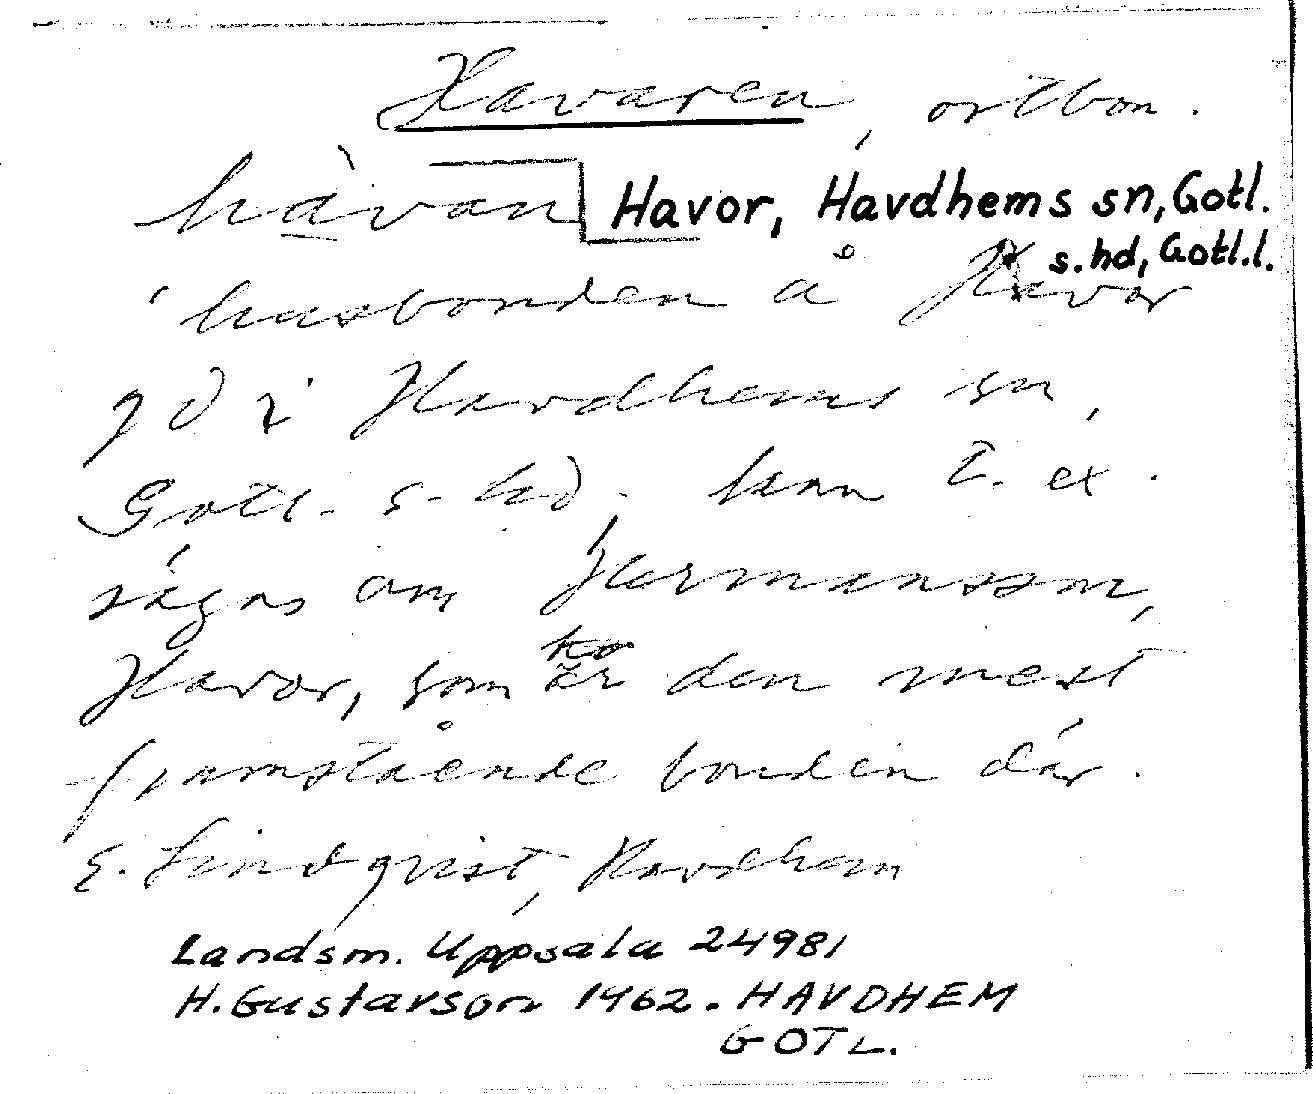 Havaren, ortbon.
hàvan Havor, Havdhems sn, Gotl.
s.hd, Gotl.l.
'husbonden å Havor
gd i Havdhems sn,
Gotl. s. hd. kan t. ex.
sägas om Hermansson,
Havor, som är den mest
framstående bonden där.
E. Lindqvist, Havdhem
Landsm. Uppsala 24981
H. Gustavson 1962. HAVDHEM
GOTL.